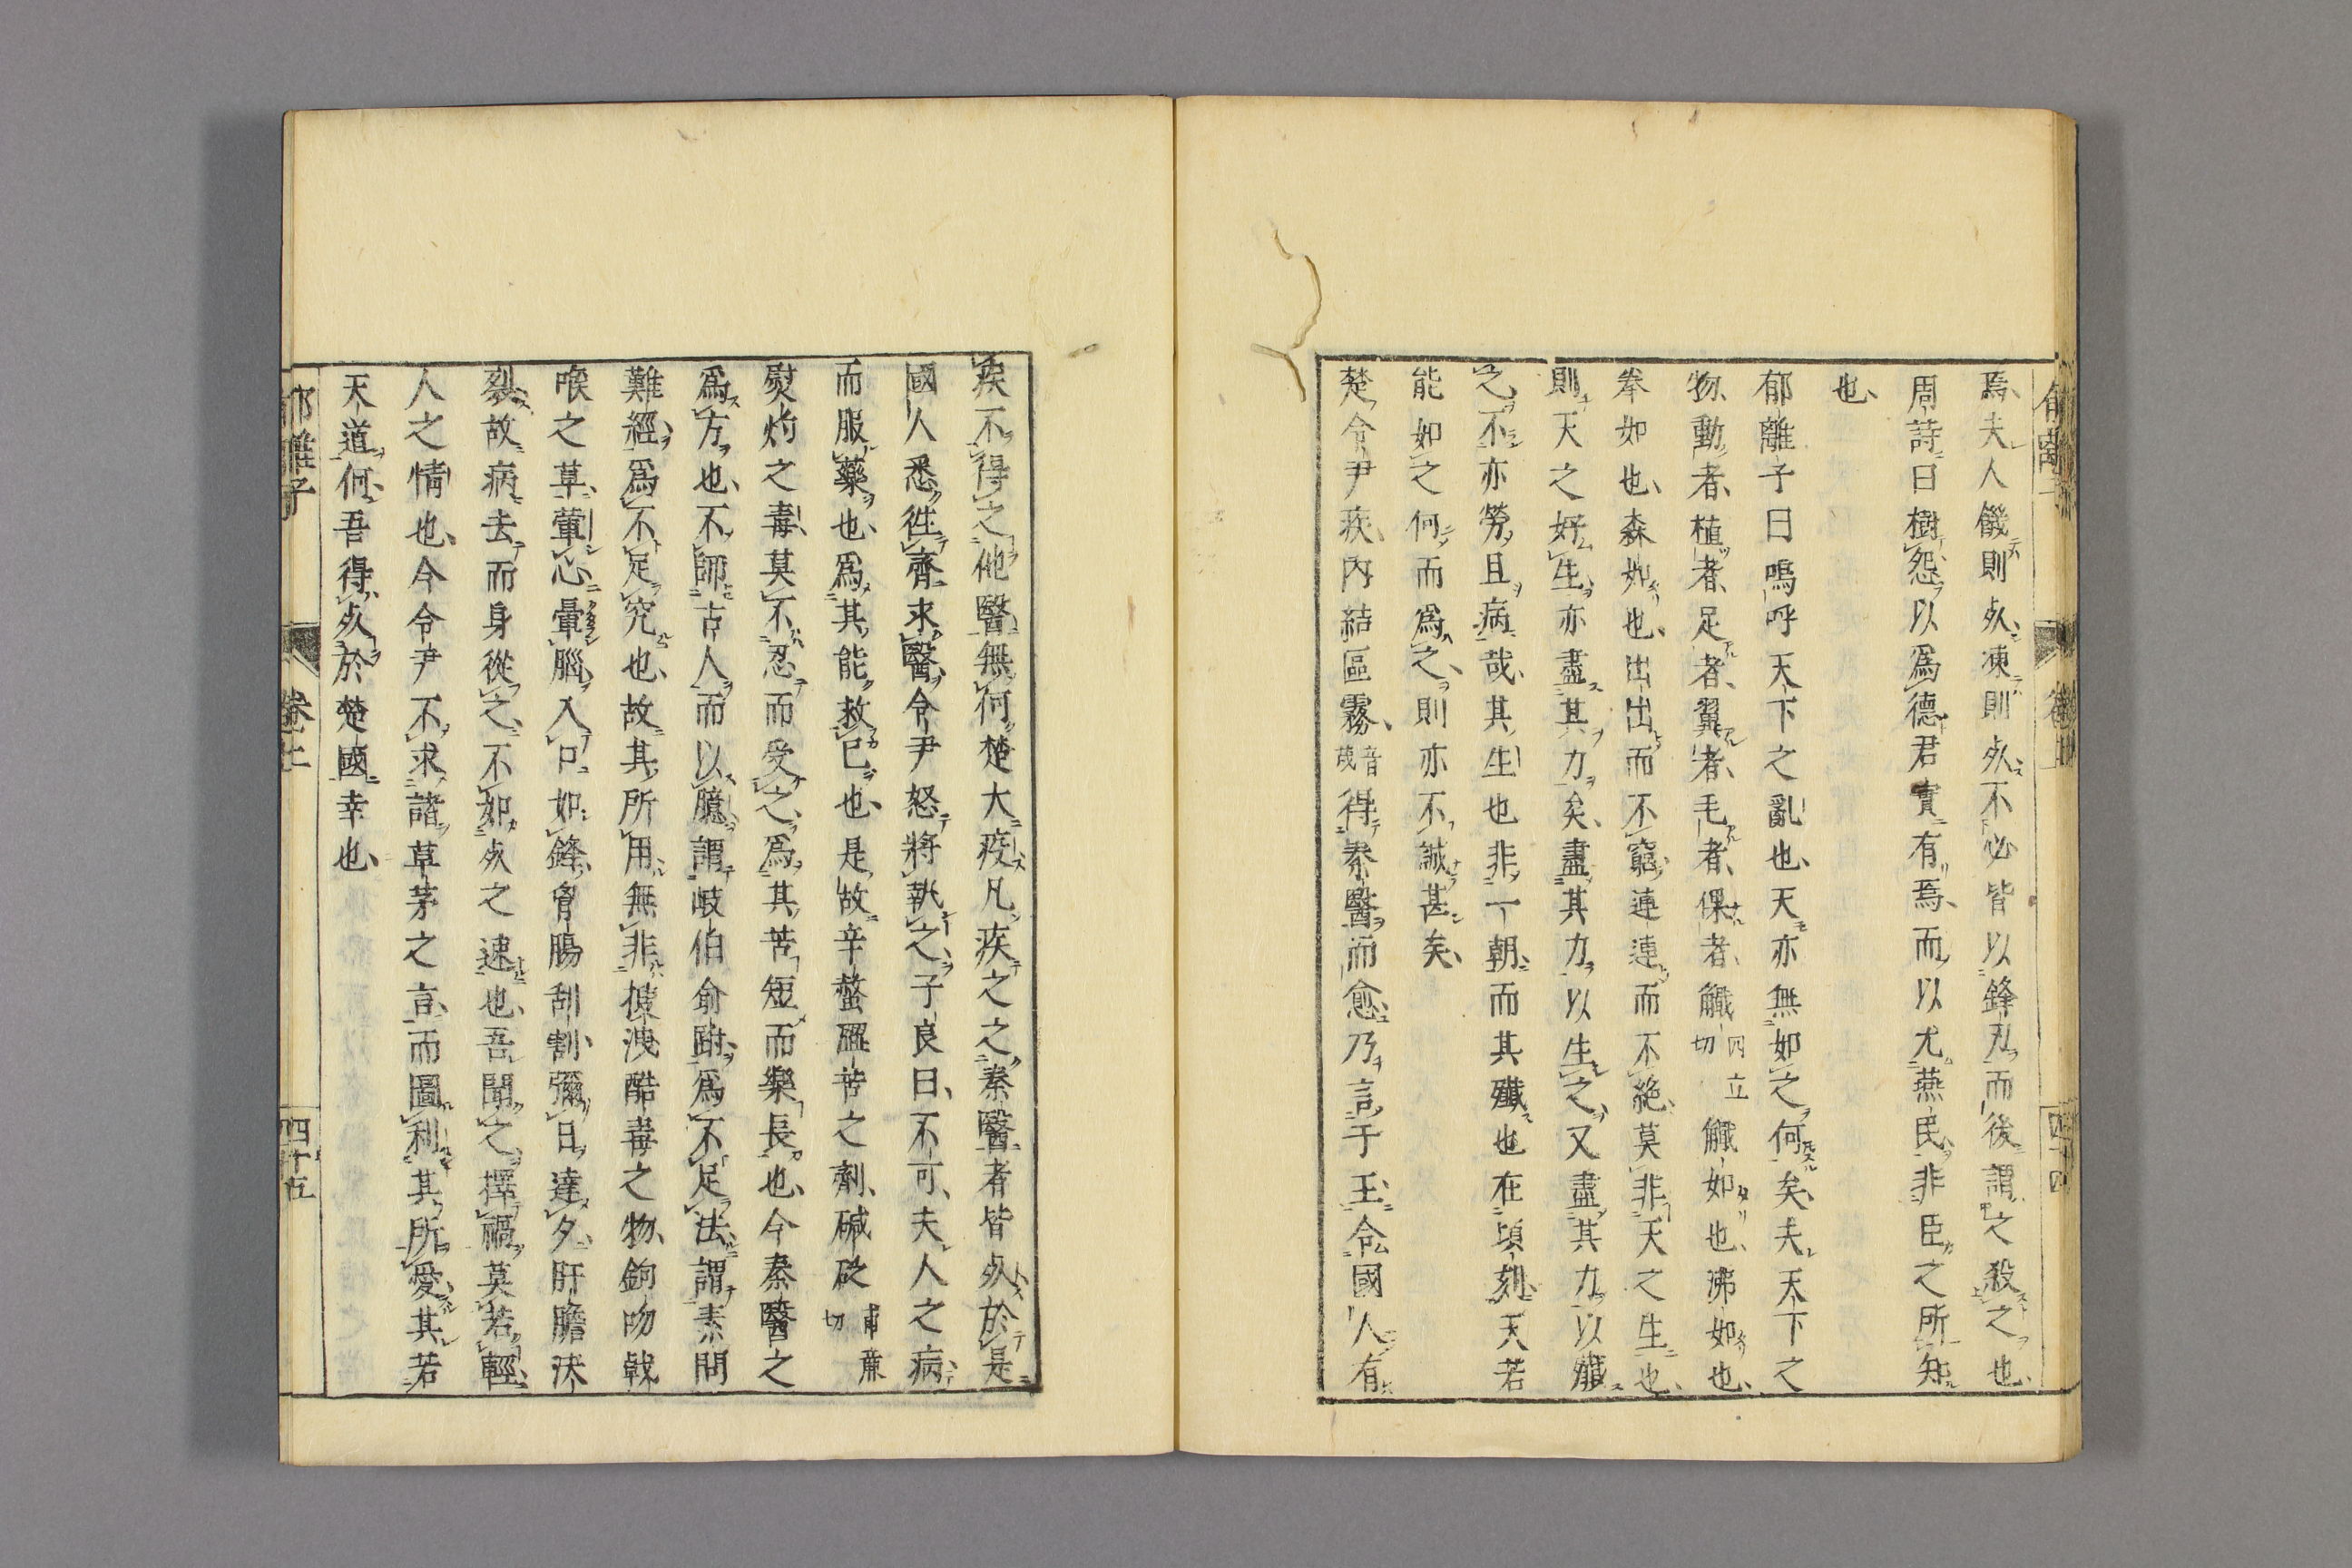 焉夫人饑則歺凍則歺不必皆以鋒刃而後謂之殺之也
周詩曰樹怨以爲德君實有焉而以尤燕民非臣之所知
也
郁離子曰嗚呼天下之亂也天亦無如之何矣夫天下之
物動者植者足者翼者毛者倮者艬四立切艬如也沸如也
拳如也森如也出出而不窮連連而不絶莫非天之生也
則天之好生亦盡其力矣盡其力以生之又盡其力以殲
之不亦勞且病哉其生也非一朝而其殲也在頃刻天若
能如之何而爲之則亦不諴甚矣
楚令尹疾內結區霿音蔑得秦醫而愈乃言于王令國人有
疾不得之他醫無何楚大疫凡疾之之秦醫者皆歺於是
國人悉徃齊求醫令尹怒將執之子良曰不可夫人之病
而服藥也爲其能救已也是故辛螫𥂶苦之劑碱砭甫㢘切
熨灼之毒莫不忍而受之爲其苦短而樂長也今秦醫之
爲方也不師古人而以臆謂岐伯俞跗爲不足法謂素問
難經爲不足究也故其所用無非搜洩酷毒之物鉤吻戟
喉之草葷心暈腦入口如鋒胷腸刮割彌日達夕肝膽决
裂故病去而身從之不如歺之速也吾聞之擇禍莫若輕
人之情也今令尹不求諸草茅之言而圖利其所愛其若
天道何吾得歺於楚國幸也
郁離子
卷上
四十五
郁離子
卷上
四十四